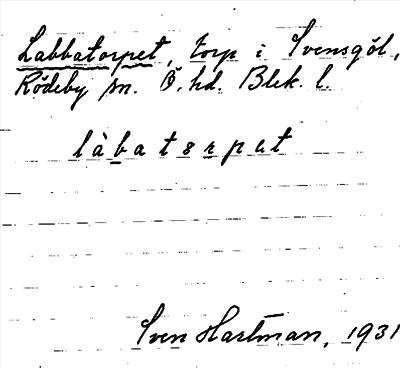 Labbatorpet, torp i Svensgöl,
Rödeby sn. Ö. hd. Blek. l.
làbatorpət
Sven Hartman, 1931